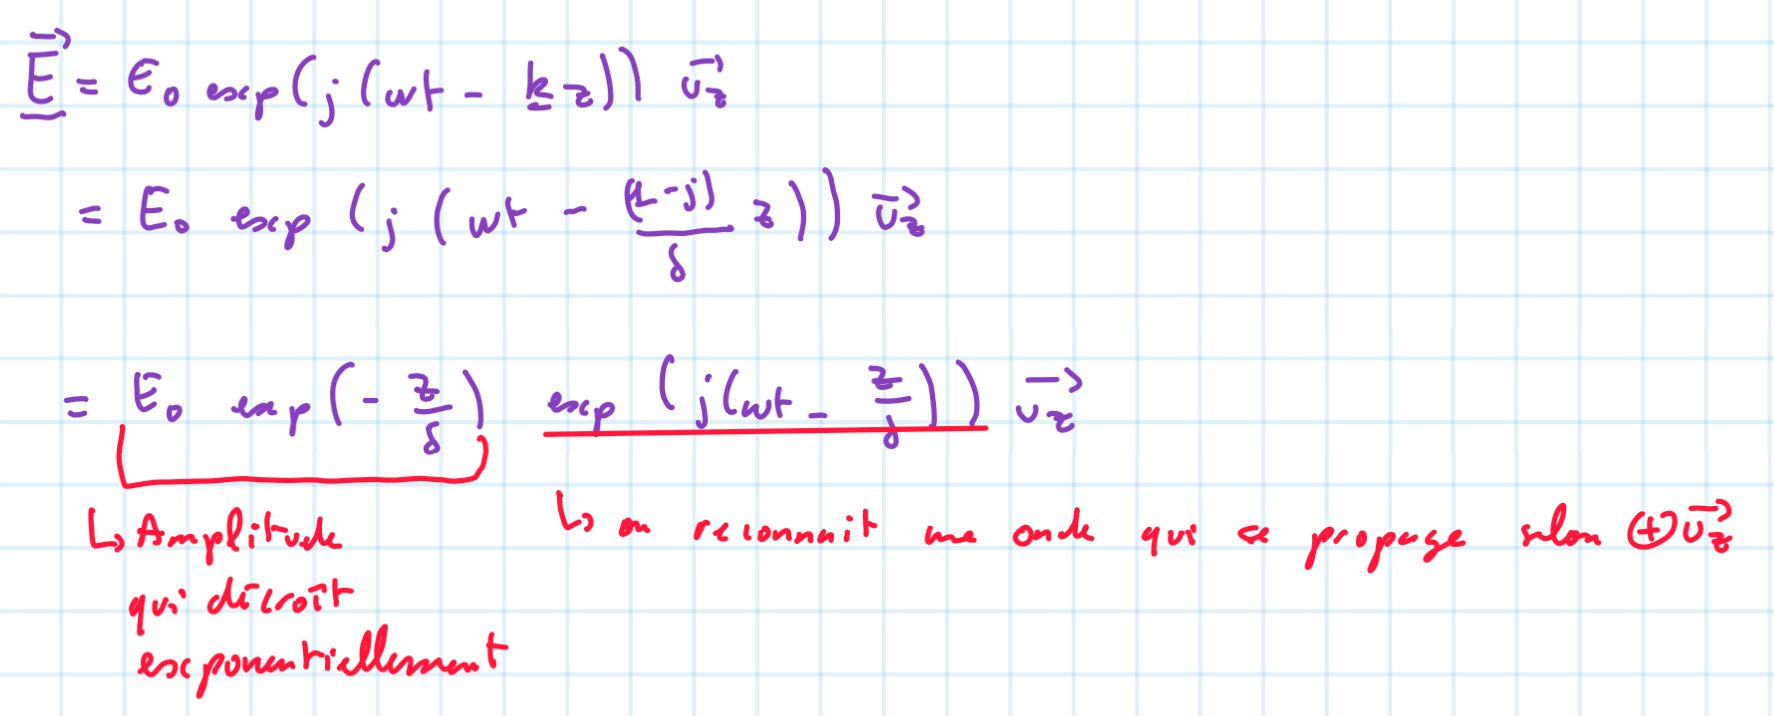 $\vec{\underline{E}} = E_0 \exp(j(\omega t - \underline{k} z)) \vec{u_z}$
$= E_0 \exp(j(\omega t - \frac{(1-j)}{\delta} z)) \vec{u_z}$
$= E_0 \exp(-\frac{z}{\delta}) \exp(j(\omega t - \frac{z}{\delta})) \vec{u_z}$
↳ Amplitude
qui décroît
exponentiellement
↳ on reconnait une onde qui se propage selon ⊕ $\vec{u_z}$